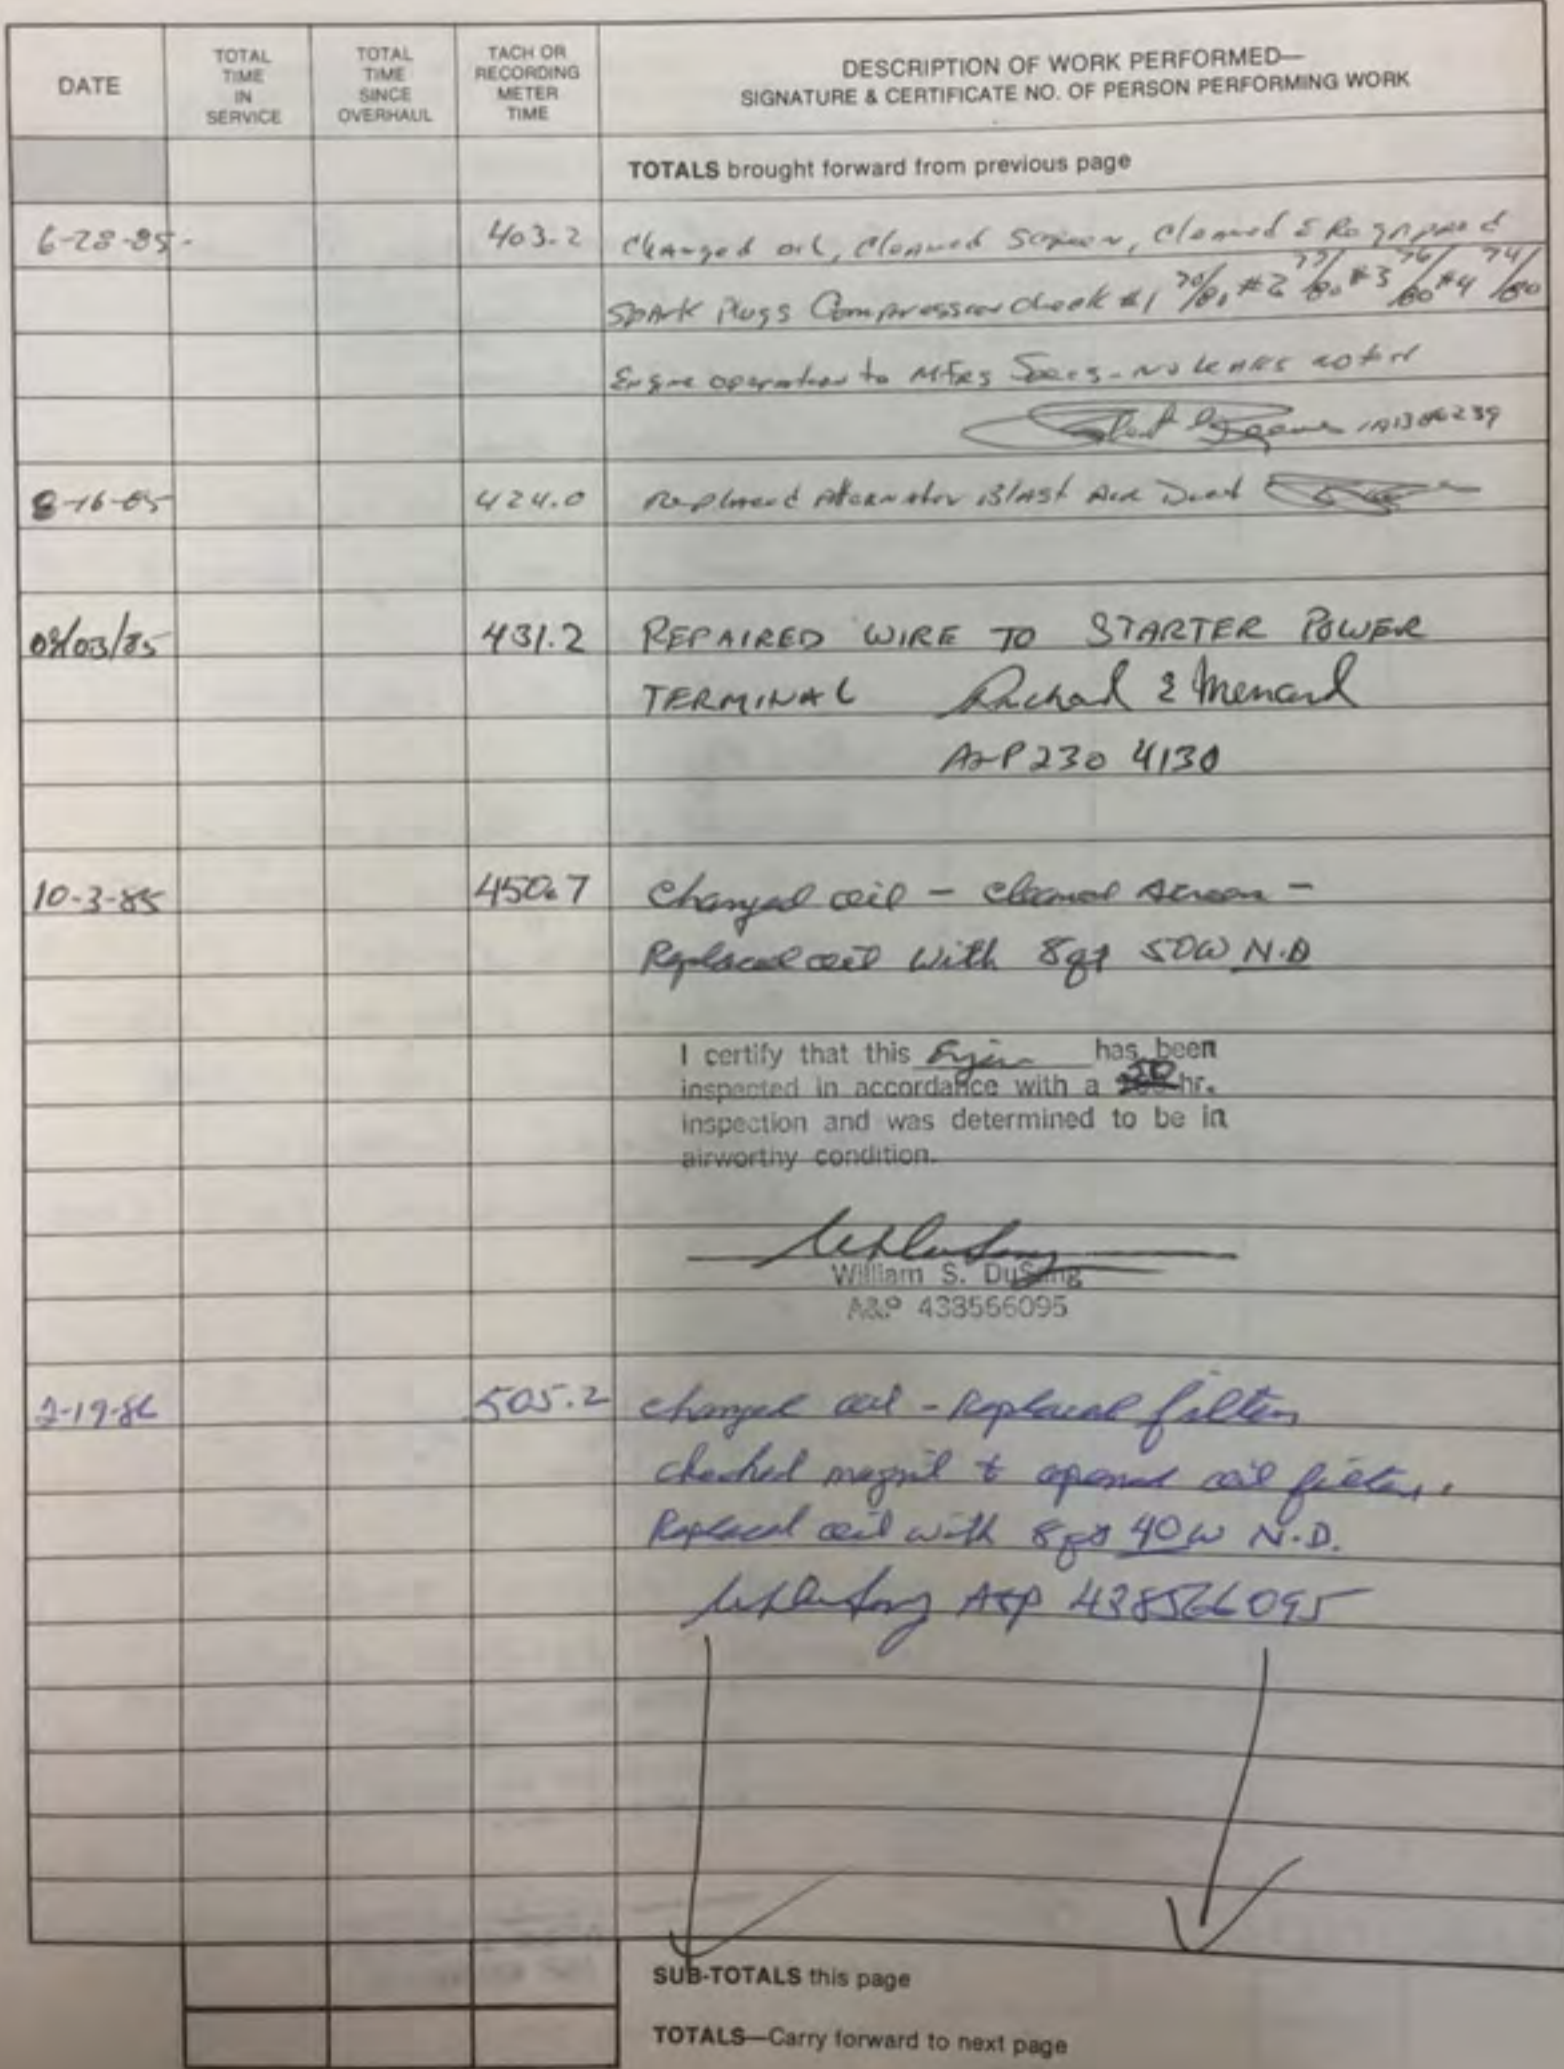 DATE
TOTAL TIME IN SERVICE
TOTAL TIME SINCE OVERHAUL
TACH OR RECORDING METER TIME
DESCRIPTION OF WORK PERFORMED—
SIGNATURE & CERTIFICATE NO. OF PERSON PERFORMING WORK
TOTALS brought forward from previous page
6-28-85 403.2 Changed oil, Cleaned Screen, Cleaned & Regapped
Spark Plugs Compression check #1 /80 #2 77/80 #3 76/80 #4 74/80
Engine operation to Mfrs Specs - No leaks noted
8-16-85 424.0 Replaced Alternator Blast Air Duct
/03/85 431.2 REPAIRED WIRE TO STARTER POWER
TERMINAL Richard E Menard
A&P 230 4130
10-3-85 450.7 Changed oil - cleaned screen -
Replaced oil with 8qt 50W N.D
I certify that this Engine has been
inspected in accordance with a 50 hr.
inspection and was determined to be in
airworthy condition.
William S. DuSang
A&P 438566095
2-19-86 505.2 changed oil - Replaced filter
checked & opened oil filter.
Replaced oil with 8qts 40W N.D.
A&P 438566095
SUB-TOTALS this page
TOTALS—Carry forward to next page